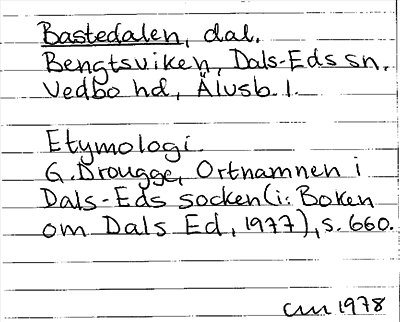 Bastedalen, dal.
Bengtsviken, Dals-Eds sn.
Vedbo hd, Älvsb. l.
Etymologi
G. Drougge, Ortnamnen i
Dals-Eds socken (i: Boken
om Dals Ed, 1977), s. 660.
1978